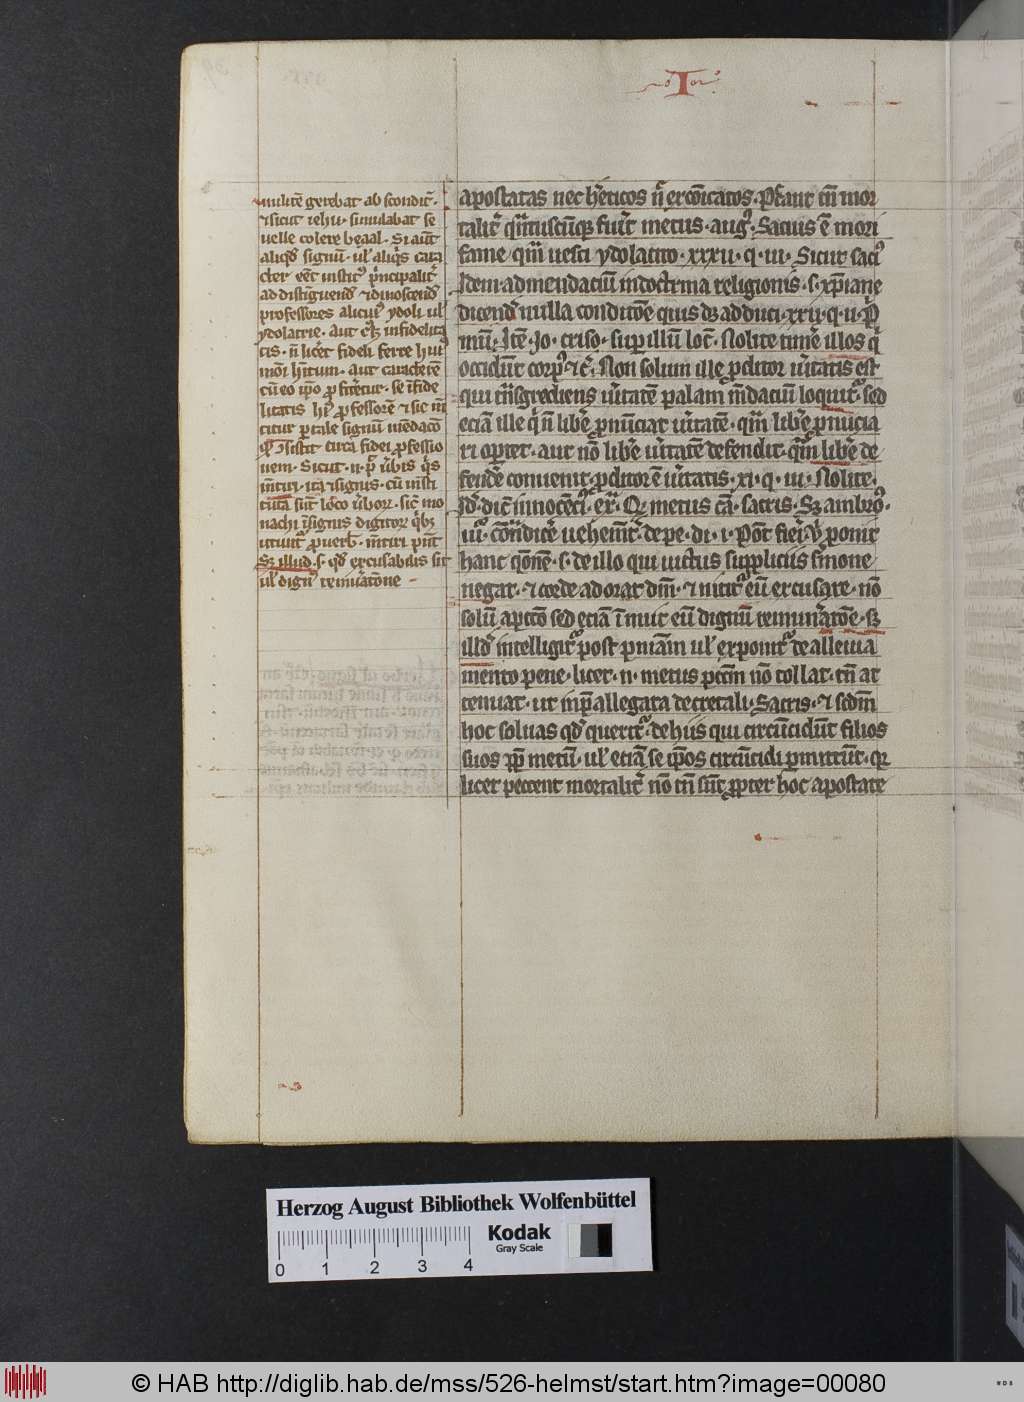 militē gerebat ab scondit᷒.
⁊ sicut iehu. simulabat se
uelle colere beaal. Si aut̄
aliqđ signū. ul' aliq̄s cara
cter eēt instit᷒ p̄ncipalit᷒
ad distinguend᷒ ⁊ dinoscend᷒
professores alicui᷒ ydoli ul'
ydolatrie. aut infidelita
tis. n̄ licet fideli ferre hui᷒
moī h̄itum. aut caracterē
cū eo ip̄o ꝓfiteretur. se īfide
litatis hui᷒ ꝓfessorē ⁊ sic m̄
titur ꝑ tale signū mēdaciū
consistit circa fidei ꝓfessio
nem. Sicut. n. p̄ uerbis q̄s
mentiri. ita ⁊ signis. cū insti
tuta sūt loco uerbor. sic mo
nachi ī signis digitor q̄bꝫ
utunt᷒ ꝓ uerb. mentiri pn̄t
Sꝫ illud. s. qđ excusabilis sit
ul' dign᷒ remuneratōne
apostatas nec hereticos n̄ excōicatos. Peccant tn̄ mor
talit᷒ quātuscūqꝫ fuit metus. aug᷒. Sacius ē mori
fame quā uesci ydolatito. xxxii. q. iii. Sicut saci᷒
Idem. ad mendaciū in doctrina religionis. s. xp̄iane
dicend᷒ nulla conditōne quis dꝫ adduci. xxii. q. ii. p̄
mū. Itē. Jo. criso. suꝑ illū loc̄. Nolite timē illos q̄
occidūt corp᷒ ⁊c̄. Non solum ille ꝓditor uītatis est
qui trāsgrediens uītatē palam mēdaciū loquit᷒. sed
eciā ille q̄ n̄ libē pronūciat uītatē. quā libē pronūcia
ri oportet. aut nō libē uītatē defendit. quā libē de
fendē conuenit. ꝓditor ē uītatis. xi. q. iii. Nolite.
Id᷒. dic̄ innocēci᷒. ex᷒. Quod metus cā. sacris. Sꝫ ambro᷒.
uī condicē uehement᷒. de pe. di. i. Pōt fieri ubi ponit
hanc qōnē. s. de illo qui uictus suppliciis sermone
negat. ⁊ corde adorat dm̄. ⁊ nitit᷒ eū excusare. nō
solū a pctō sed eciā īnuit eū dignū remunatōe. sꝫ
illđ intelligit᷒ post pniām ul' exponit᷒ de alleuia
mento pene. licet. n. metus pctm̄ nō tollat. tn̄ at
tenuat. ut in p̄allegata decretali. Sacris. ⁊ scđm
hoc soluas qđ querit᷒. de hiis qui circūcidūt filios
suos ꝓp̄ metū. ul' etiā se ip̄os circūcidi ꝑmittūt. qꝛ
licet peccent mortalit᷒ nō tn̄ sūt ꝓpter hoc apostate
Herzog August Bibliothek Wolfenbüttel
Kodak
Gray Scale
0 1 2 3 4
© HAB http://diglib.hab.de/mss/526-helmst/start.htm?image=00080